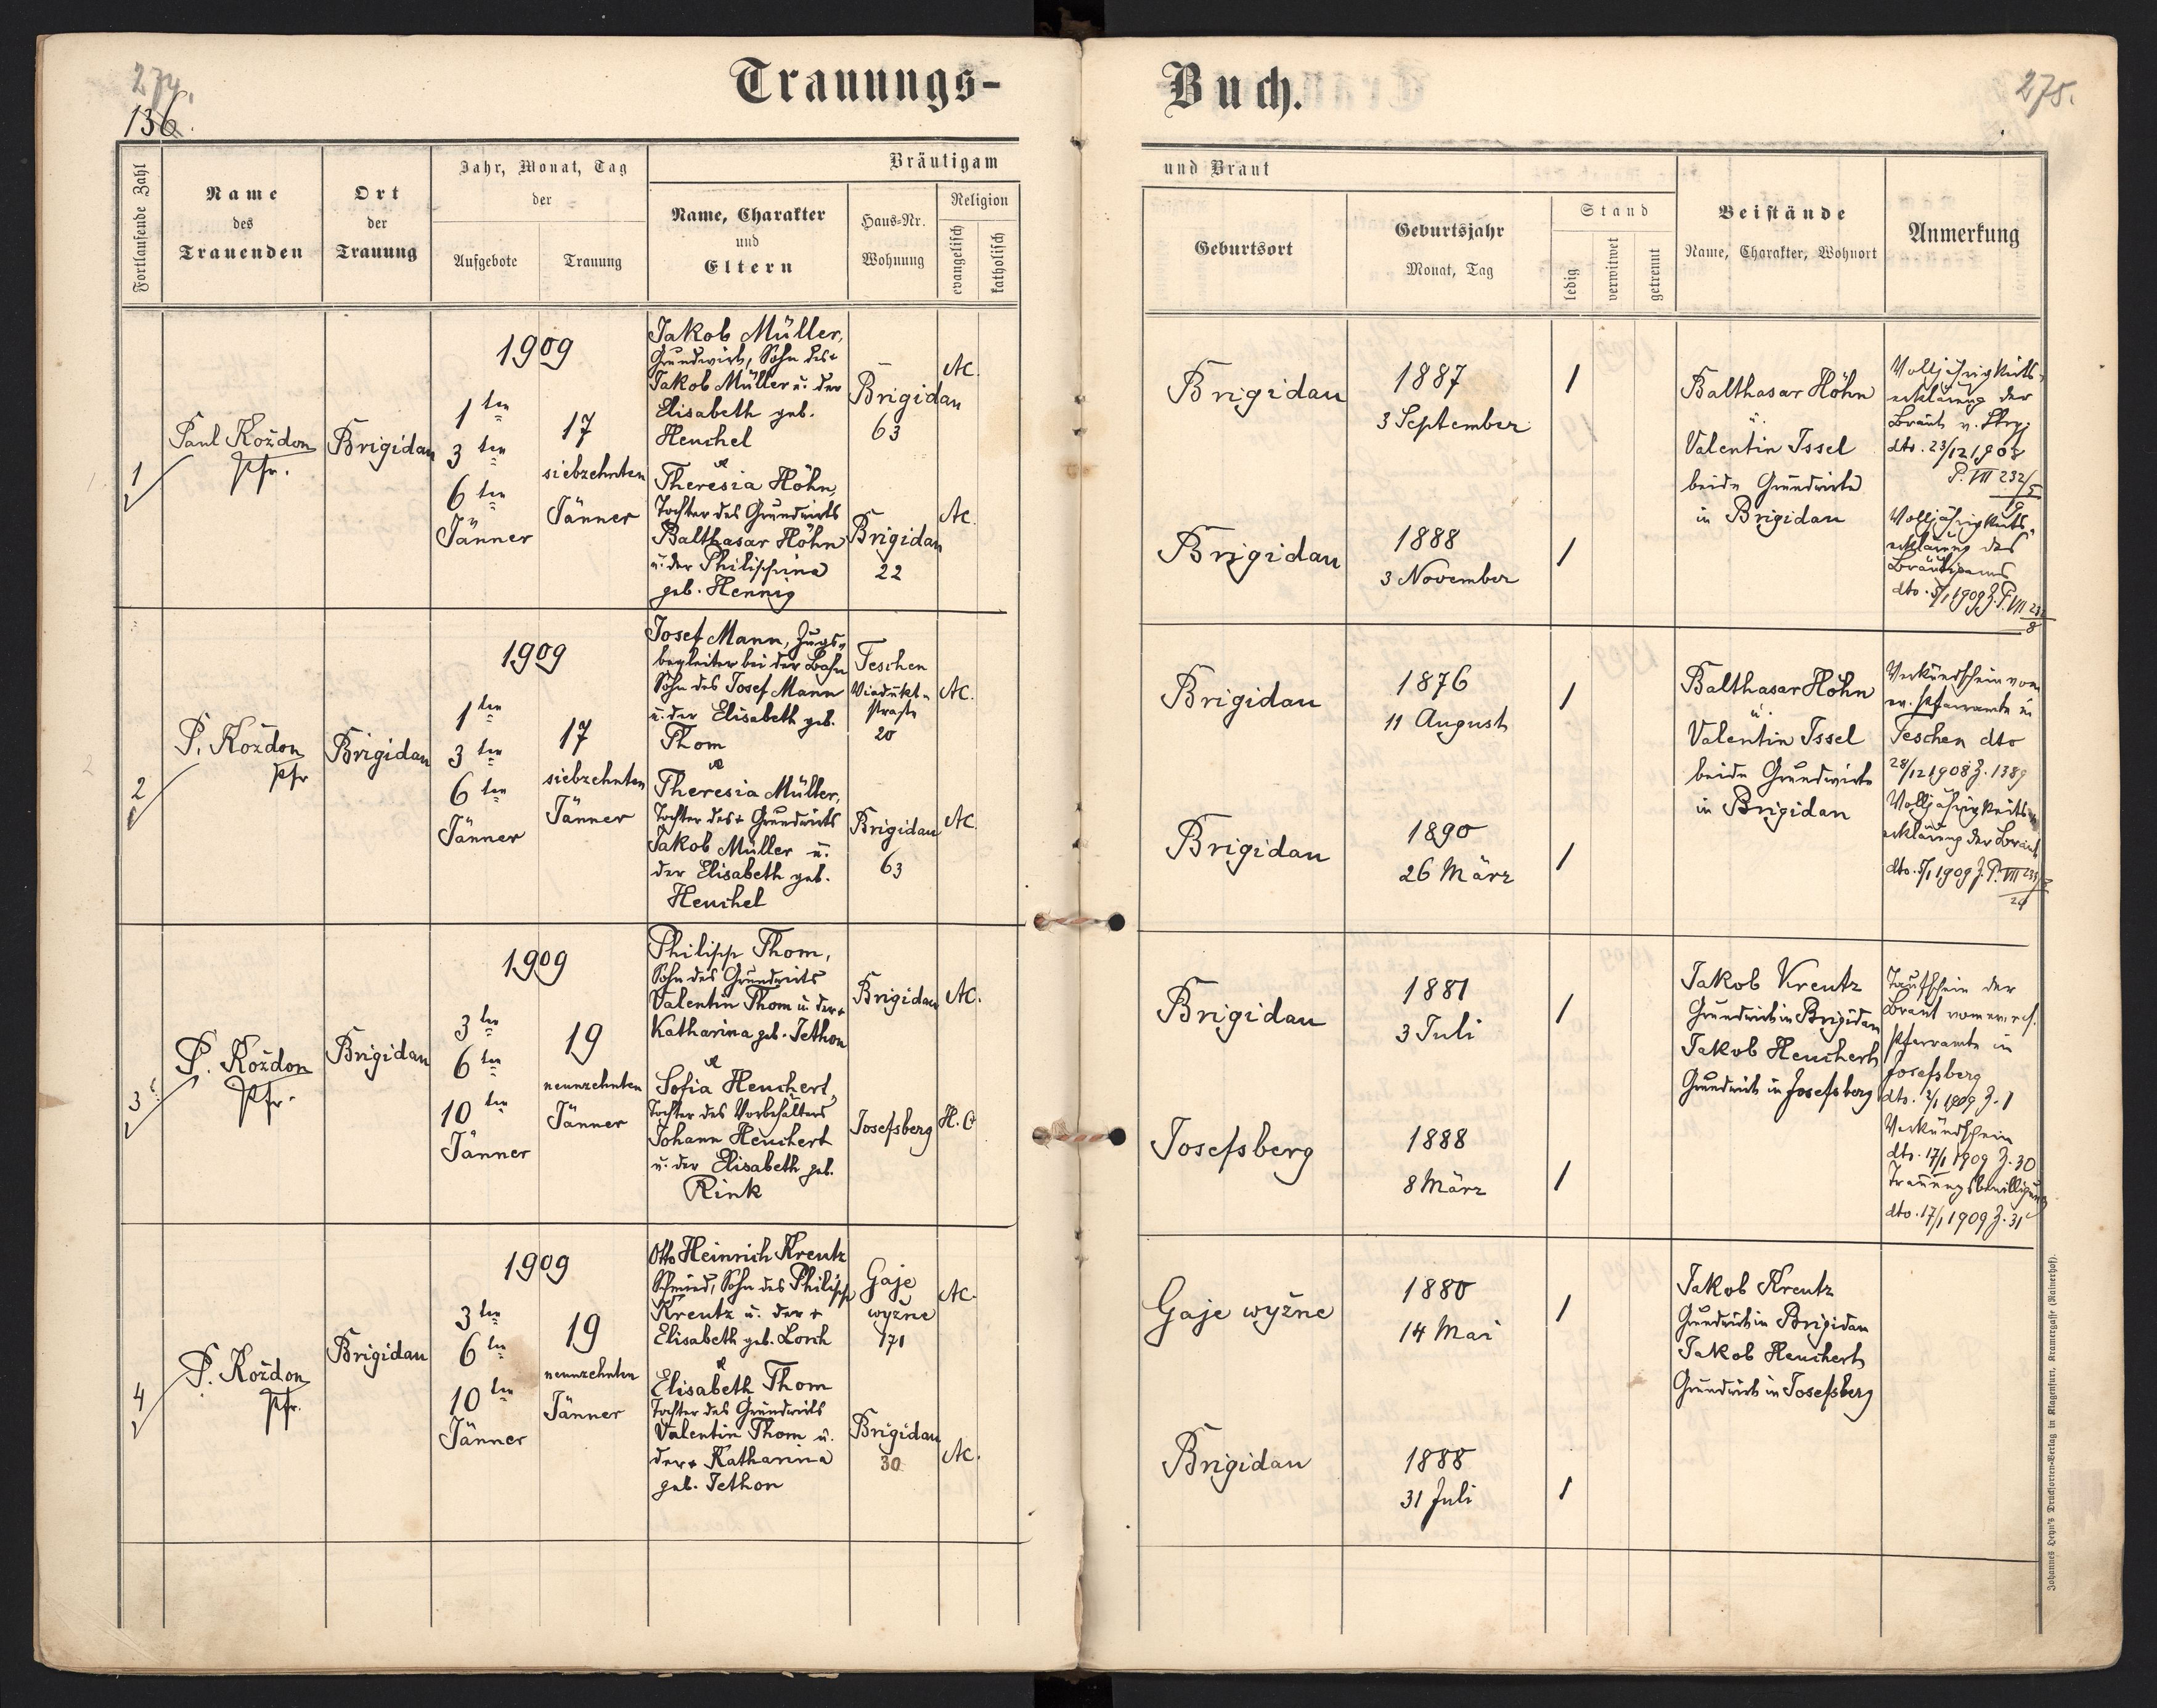 274.
136.
Trauungs-
Buch.
275.
Fortlaufende Zahl
Name
des
Trauenden
Ort
der
Trauung
Jahr, Monat, Tag
der
Aufgebote
Trauung
Bräutigam
Name, Charakter
und
Eltern
Haus-Nr.
Wohnung
Religion
evangelisch
katholisch
und Braut
Geburtsort
Geburtsjahr
Monat, Tag
Stand
ledig
verwitwet
getrennt
Beistände
Name, Charakter, Wohnort
Anmerkung
1
Paul Koždon
Pfr.
Brigidau
1909
1ten
3ten
6ten
Jänner
17
siebzehnten
Jänner
Jakob Müller,
Grundwirt, Sohn des +
Jakob Müller u. der
Elisabeth geb.
Heuchel
Brigidau
63
AC.
Theresia Höhn,
Tochter des Grundwirts
Balthasar Höhn
u. der Philippina
geb. Hennig
Brigidau
22
AC.
Brigidau
1887
3 September
1
Brigidau
1888
3 November
1
Balthasar Höhn
u.
Valentin Issel
beide Grundwirte
in Brigidau
Volljährigkeits-
erklärung der
Braut v. Stryj
dto. 23/12 1908
P. VII 232/5
9
Volljährigkeits-
erklärung des
Bräutigams
dto. 5/1 1909 Z. P. VII 232
8
2
P. Koždon
Pfr
Brigidau
1909
1ten
3ten
6ten
Jänner
17
siebzehnten
Jänner
Josef Mann, Zugs-
begleiter bei der Bahn
Sohn des Josef Mann
u. der Elisabeth geb.
Thom
Teschen
Viadukt-
straße
20
AC.
Theresia Müller,
Tochter des + Grundwirts
Jakob Müller u.
der Elisabeth geb.
Heuchel
Brigidau
63
AC.
Brigidau
1876
11 August
1
Brigidau
1890
26 März
1
Balthasar Höhn
u.
Valentin Issel
beide Grundwirte
in Brigidau
Verkündschein vom
ev. Pfarramte in
Teschen dto
28/12 1908 Z. 1389
Volljährigkeits-
erklärung der Braut
dto. 5/1 1909 Z. P. VII
3
P. Koždon
Pfr.
Brigidau
1909
3ten
6ten
10ten
Jänner
19
neunzehnten
Jänner
Philipp Thom,
Sohn des Grundwirts
Valentin Thom u. der +
Katharina geb. Jethon
Brigidau
AC.
Sofia Heuchert,
Tochter des Vorbehälters
Johann Heuchert
u. der Elisabeth geb.
Rink
Josefsberg
H.C
Brigidau
1881
3 Juli
1
Josefsberg
1888
8 März
1
Jakob Kreutz
Grundwirt in Brigidau
Jakob Heuchert
Grundwirt in Josefsberg
Taufschein der
Braut vom ev. ref.
Pfarramte in
Josefsberg
dto. 2/1 1909 Z. 1
Verkündschein
dto. 17/1 1909 Z. 30
Trauungsbewilligung
dto. 17/1 1909 Z. 31
4
P. Koždon
Pfr.
Brigidau
1909
3ten
6ten
10ten
Jänner
19
neunzehnten
Jänner
Otto Heinrich Kreutz
Schmied, Sohn des Philipp
Kreutz u. der +
Elisabeth geb. Lorch
Gaje
wyżne
171
AC.
Elisabeth Thom
Tochter des Grundwirts
Valentin Thom u.
der + Katharina
geb. Jethon
Brigidau
30
AC.
Gaje wyżne
1880
14 Mai
1
Brigidau
1888
31 Juli
1
Jakob Kreutz
Grundwirt in Brigidau
Jakob Heuchert
Grundwirt in Josefsberg
Johannes Heyn's Drucksorten-Verlag in Klagenfurt, Kramergasse (Rainerhof).